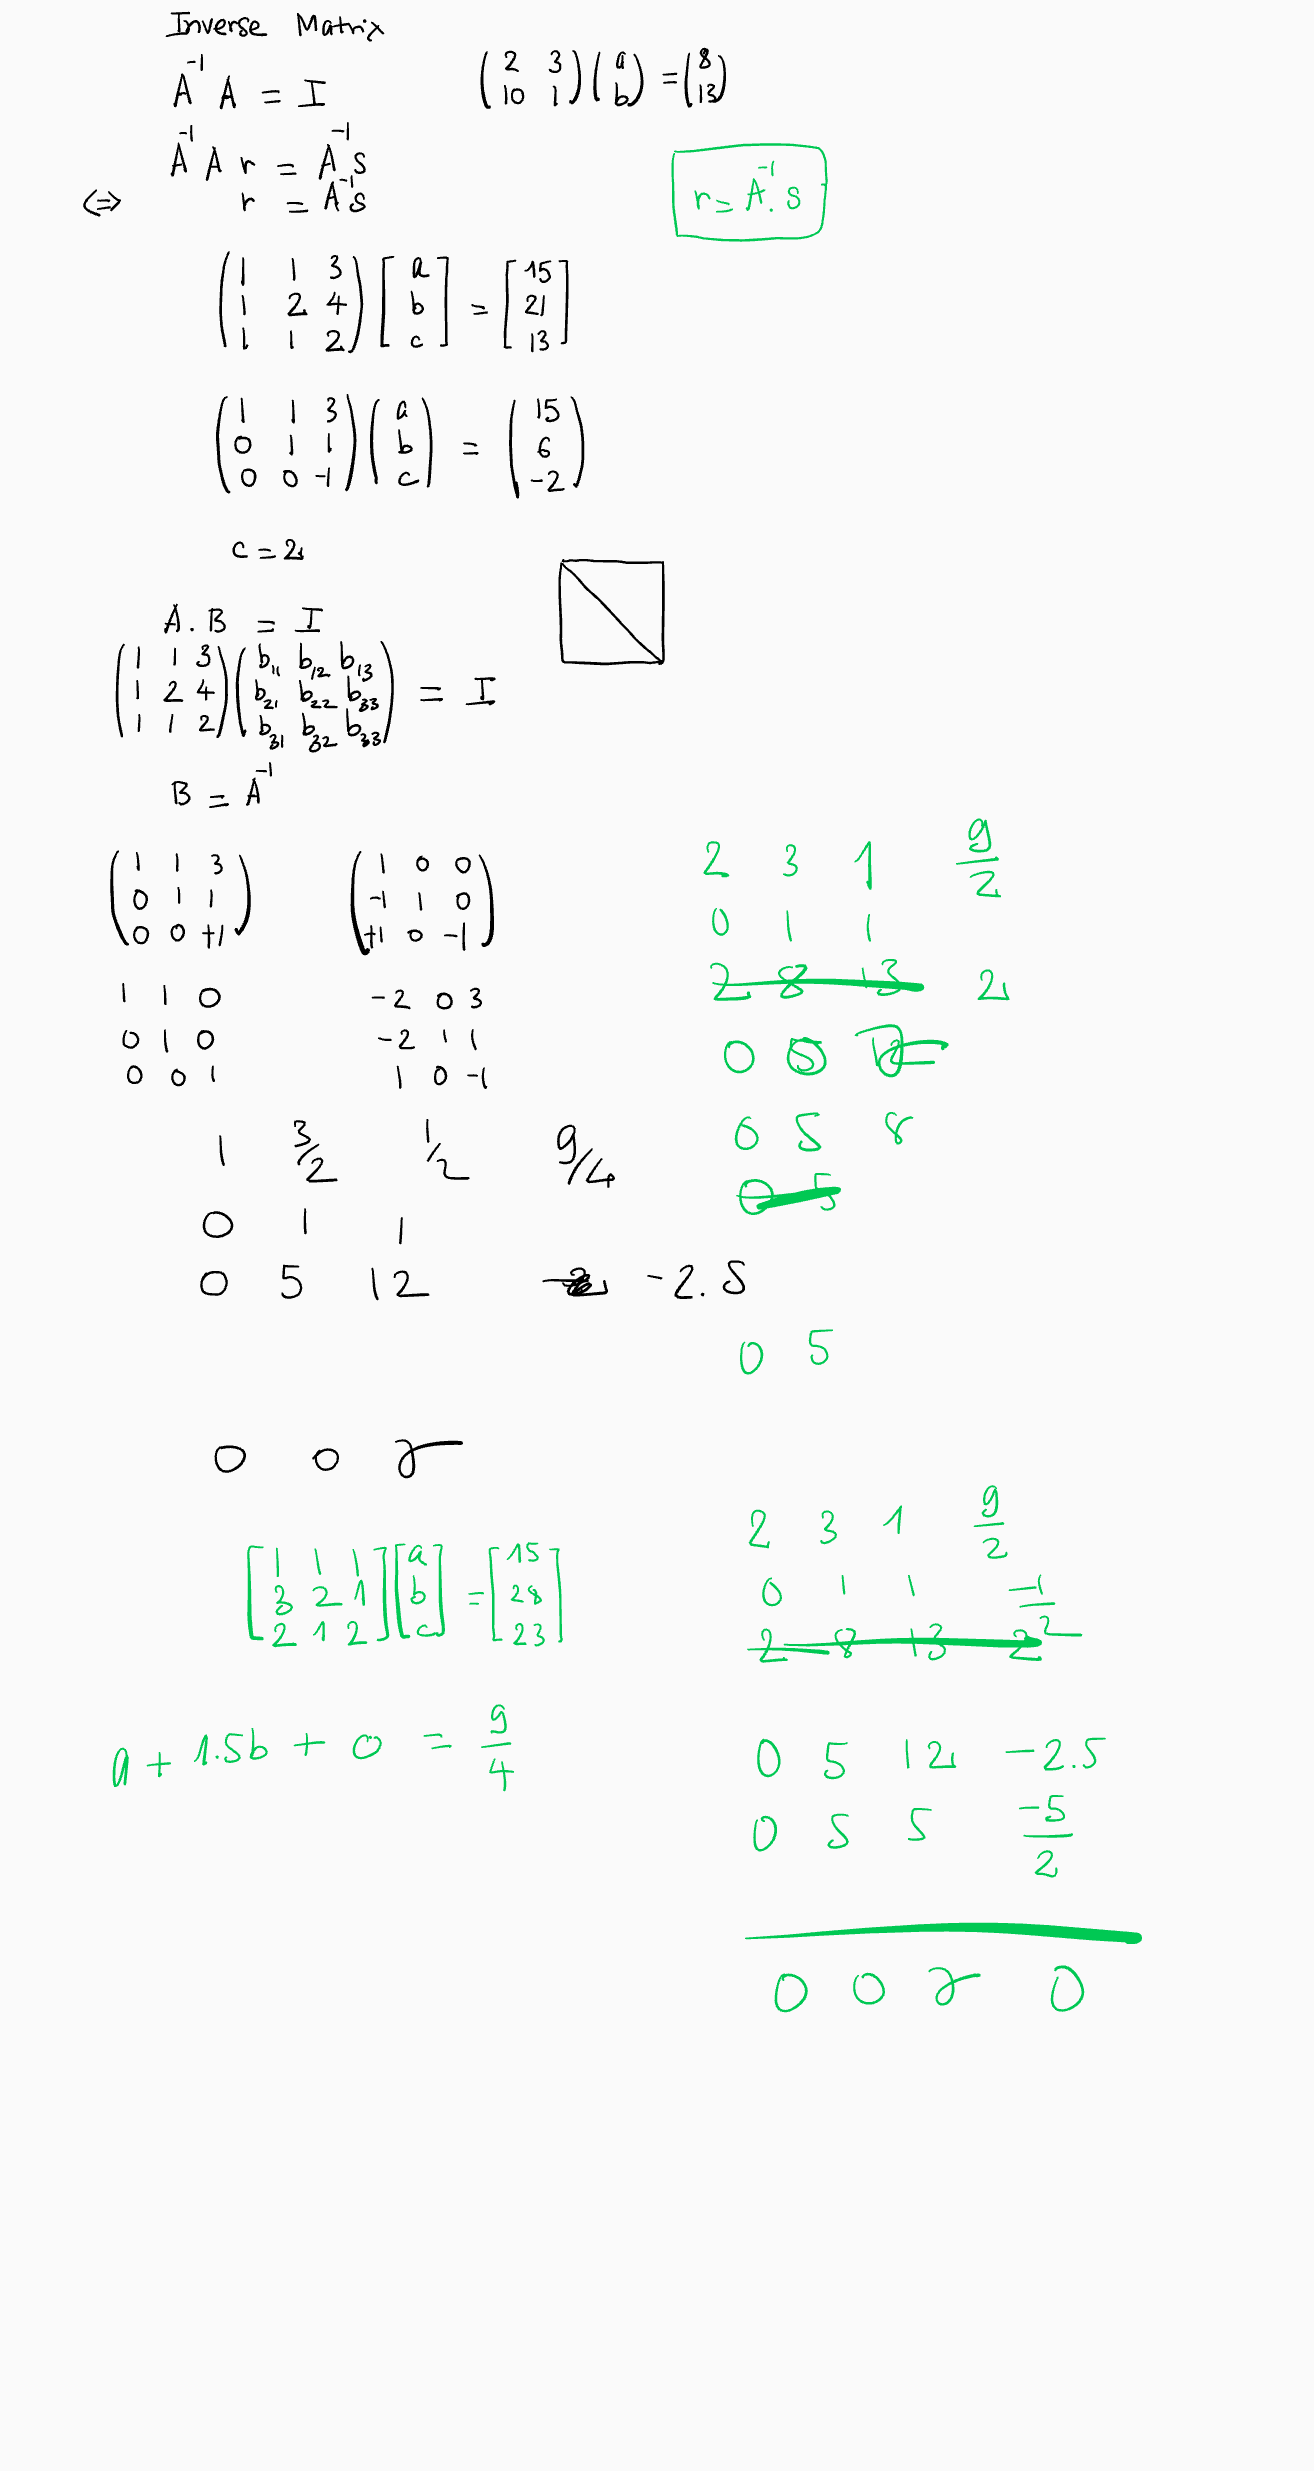 Inverse Matrix
A⁻¹ A = I
(2 3
10 1) (a
b) = (8
13)
A⁻¹ A r = A⁻¹ s
⇔ r = A⁻¹ s
r = A⁻¹. s
(1 1 3
1 2 4
1 1 2) [a
b
c] = [15
21
13]
(1 1 3
0 1 1
0 0 -1) (a
b
c) = (15
6
-2)
c = 2
A. B = I
(1 1 3
1 2 4
1 1 2) (b₁₁ b₁₂ b₁₃
b₂₁ b₂₂ b₃₃
b₃₁ b₃₂ b₃₃) = I
B = A⁻¹
(1 1 3
0 1 1
0 0 +1) (1 0 0
-1 1 0
+1 0 -1)
1 1 0 -2 0 3
0 1 0 -2 1 1
0 0 1 1 0 -1
1 3/2 1/2 9/4
0 1 1
0 5 12 -2.5
0 0 7
2 3 1 9/2
0 1 1
2 8 13 2
0 5 12
0 5 8
0 5
0 5
[1 1 1
3 2 1
2 1 2] [a
b
c] = [15
28
23]
a + 1.5b + 0 = 9/4
2 3 1 9/2
0 1 1 -1/2
2 8 13 2
0 5 12 -2.5
0 5 5 -5/2
0 0 7 0